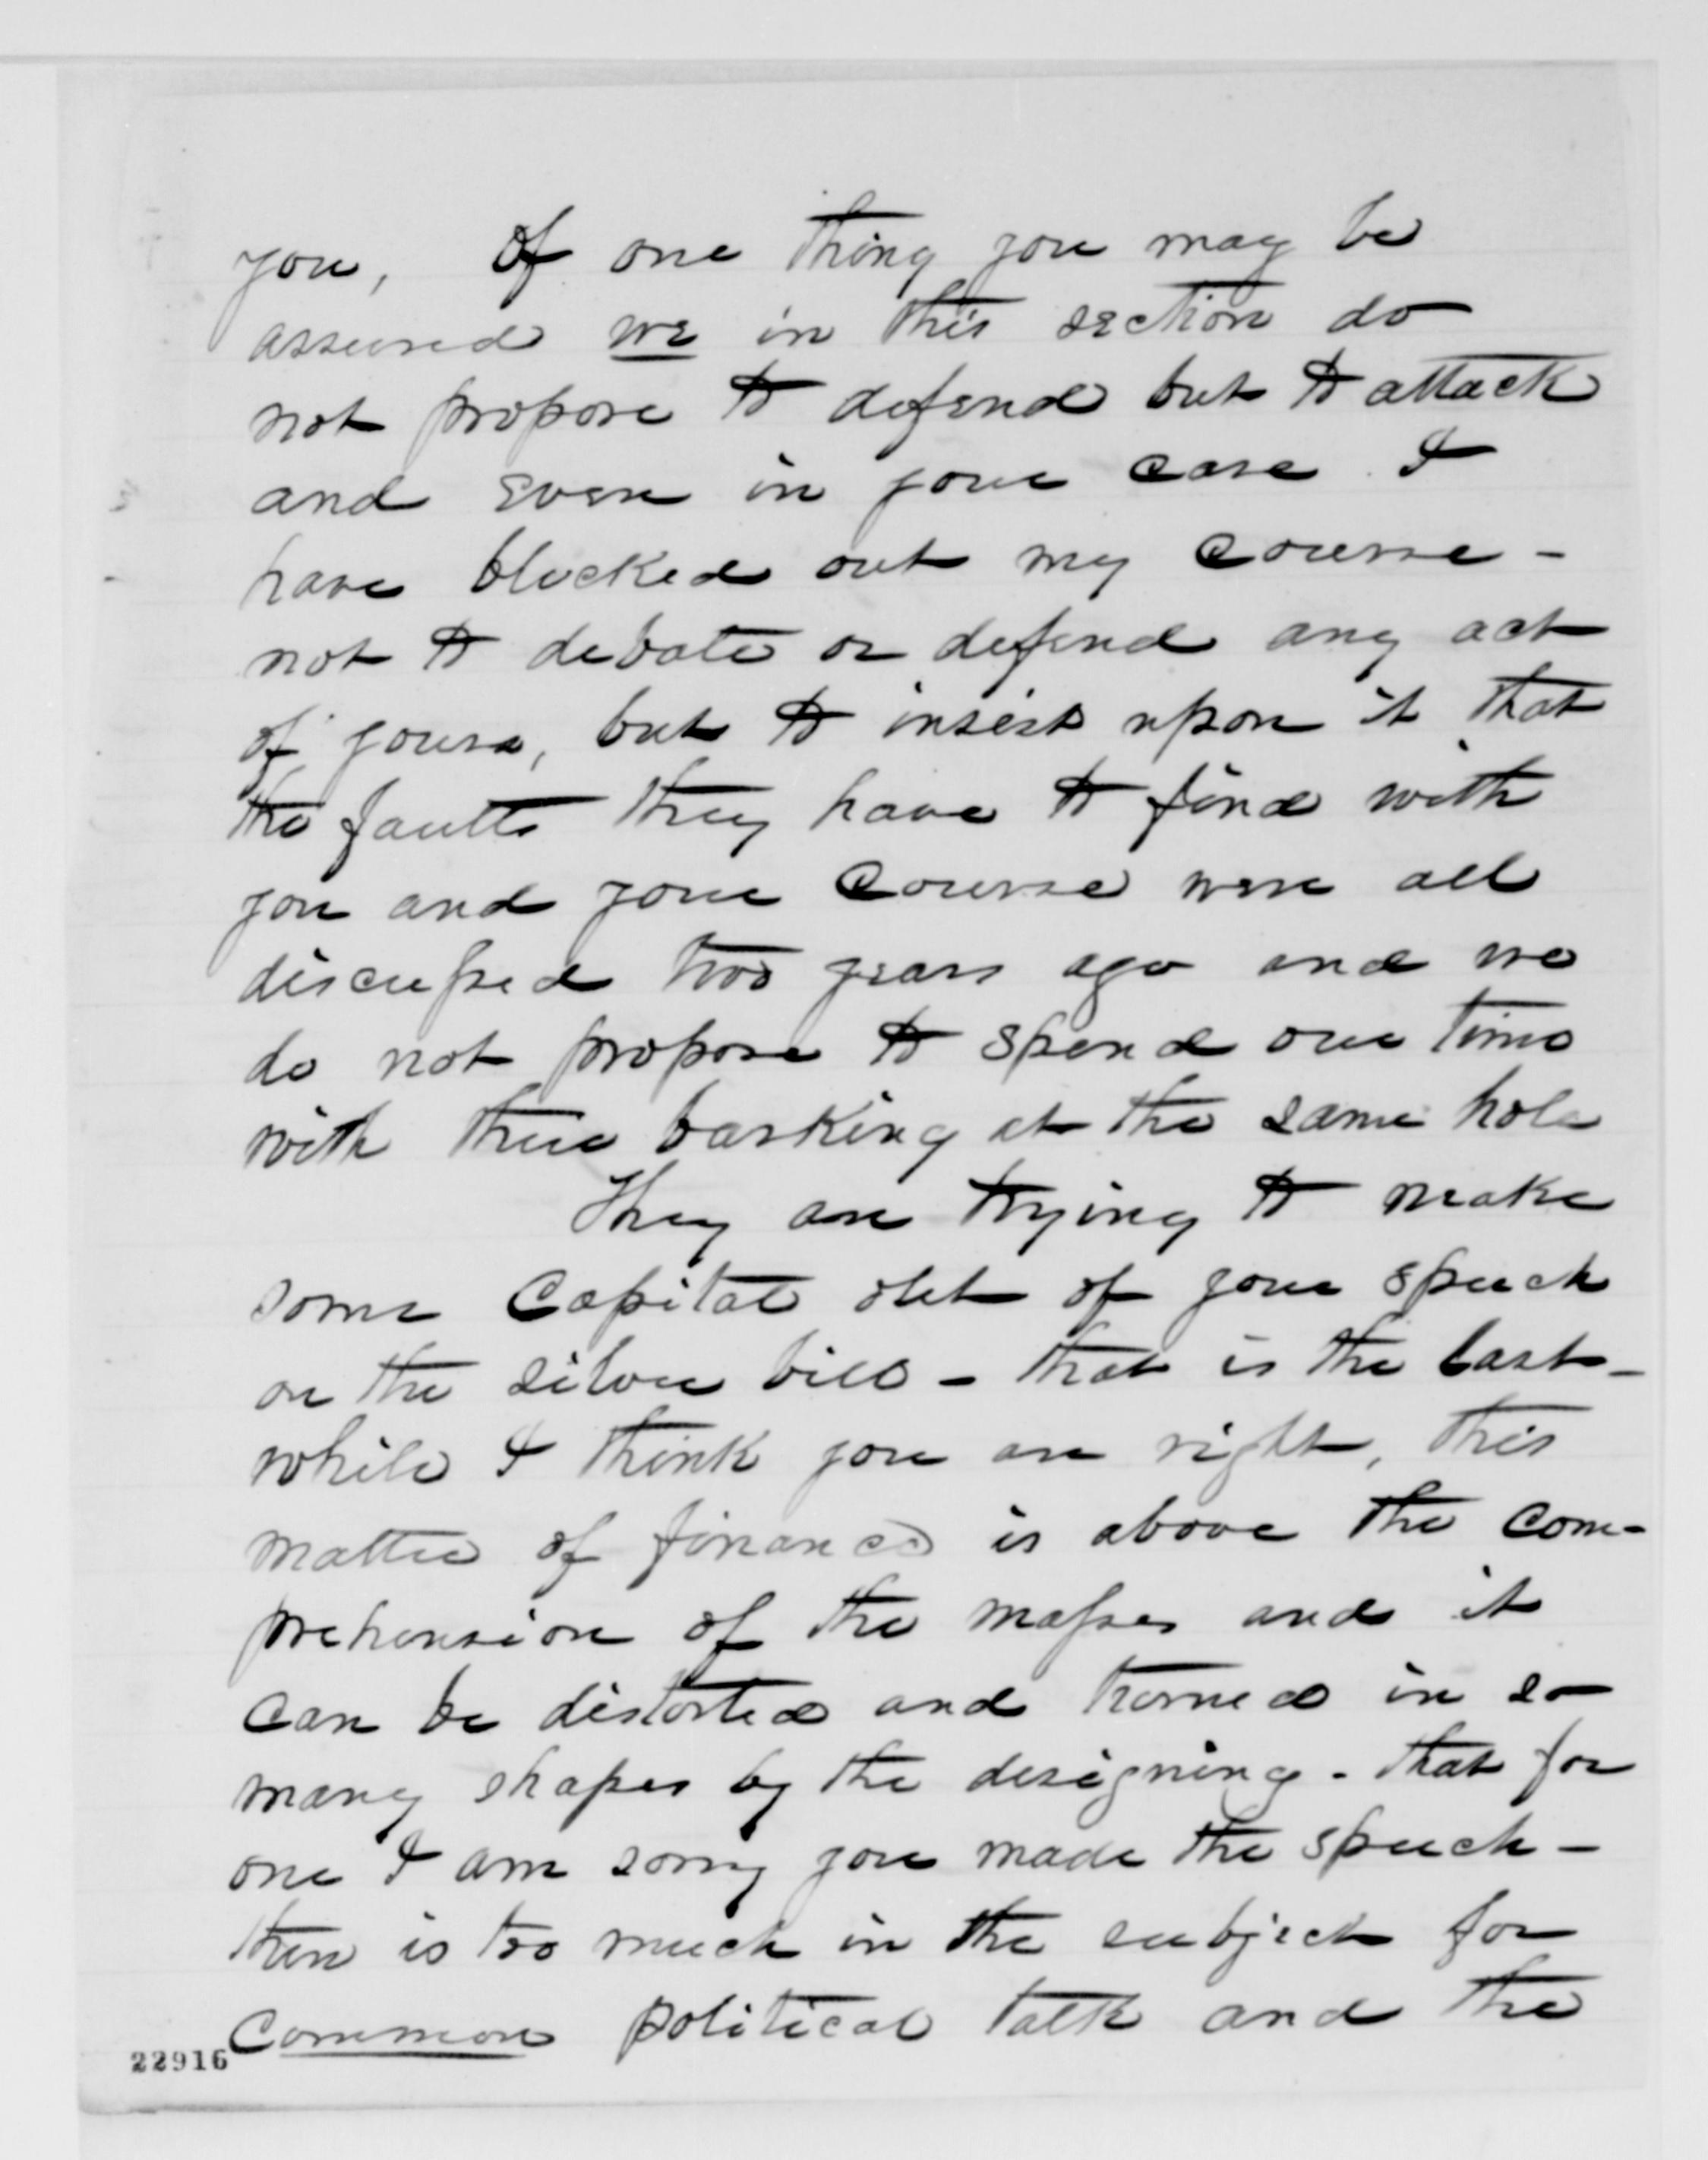 you, Of one thing you may be
assured we in this section do
not propose to defend but to attack
and even in your case I
have blocked out my course -
not to debate or defend any act
of yours, but to insist upon it that
the faults they have to find with
you and your course were all
discussed two years ago and we
do not propose to spend our time
with their barking at the same hole
They are trying to make
some Capital out of your speech
on the silver bill - that is the last -
while I think you are right, this
matter of finance is above the com-
prehension of the masses and it
can be distorted and turned in so
many shapes by the designing - that for
one I am sorry you made the speech -
there is too much in the subject for
Common political talk and the
22916